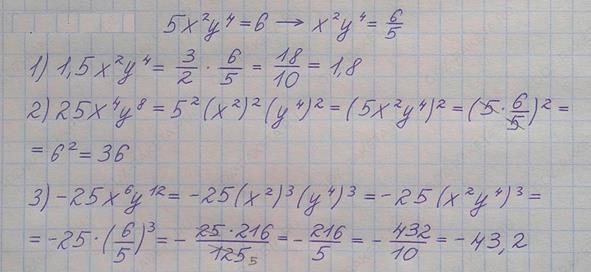 5x²y⁴=6 → x²y⁴= 6/5
1) 1,5x²y⁴= 3/2 · 6/5 = 18/10 = 1,8
2) 25x⁴y⁸ = 5²(x²)²(y⁴)² = (5x²y⁴)² = (5· 6/5)² =
= 6² = 36
3) -25x⁶y¹² = -25(x²)³(y⁴)³ = -25(x²y⁴)³ =
= -25·(6/5)³ = - 25·216/125₅ = - 216/5 = - 432/10 = -43,2